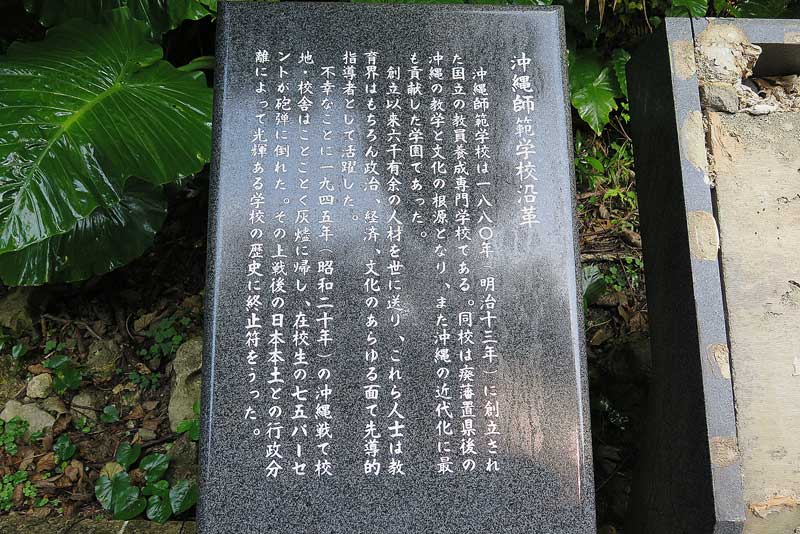 沖縄師範学校沿革
沖縄師範学校は一八八〇年（明治十三年）に創立され
た国立の教員養成専門学校である。同校は廃藩置県後の
沖縄の教学と文化の根源となり、また沖縄の近代化に最
も貢献した学園であった。
創立以来六千有余の人材を世に送り、これら人士は教
育界はもちろん政治、経済、文化のあらゆる面で先導的
指導者として活躍した。
不幸なことに一九四五年（昭和二十年）の沖縄戦で校
地・校舎はことごとく灰燼に帰し、在校生の七五パーセ
ントが砲弾に倒れた。その上戦後の日本本土との行政分
離によって光輝ある学校の歴史に終止符をうった。